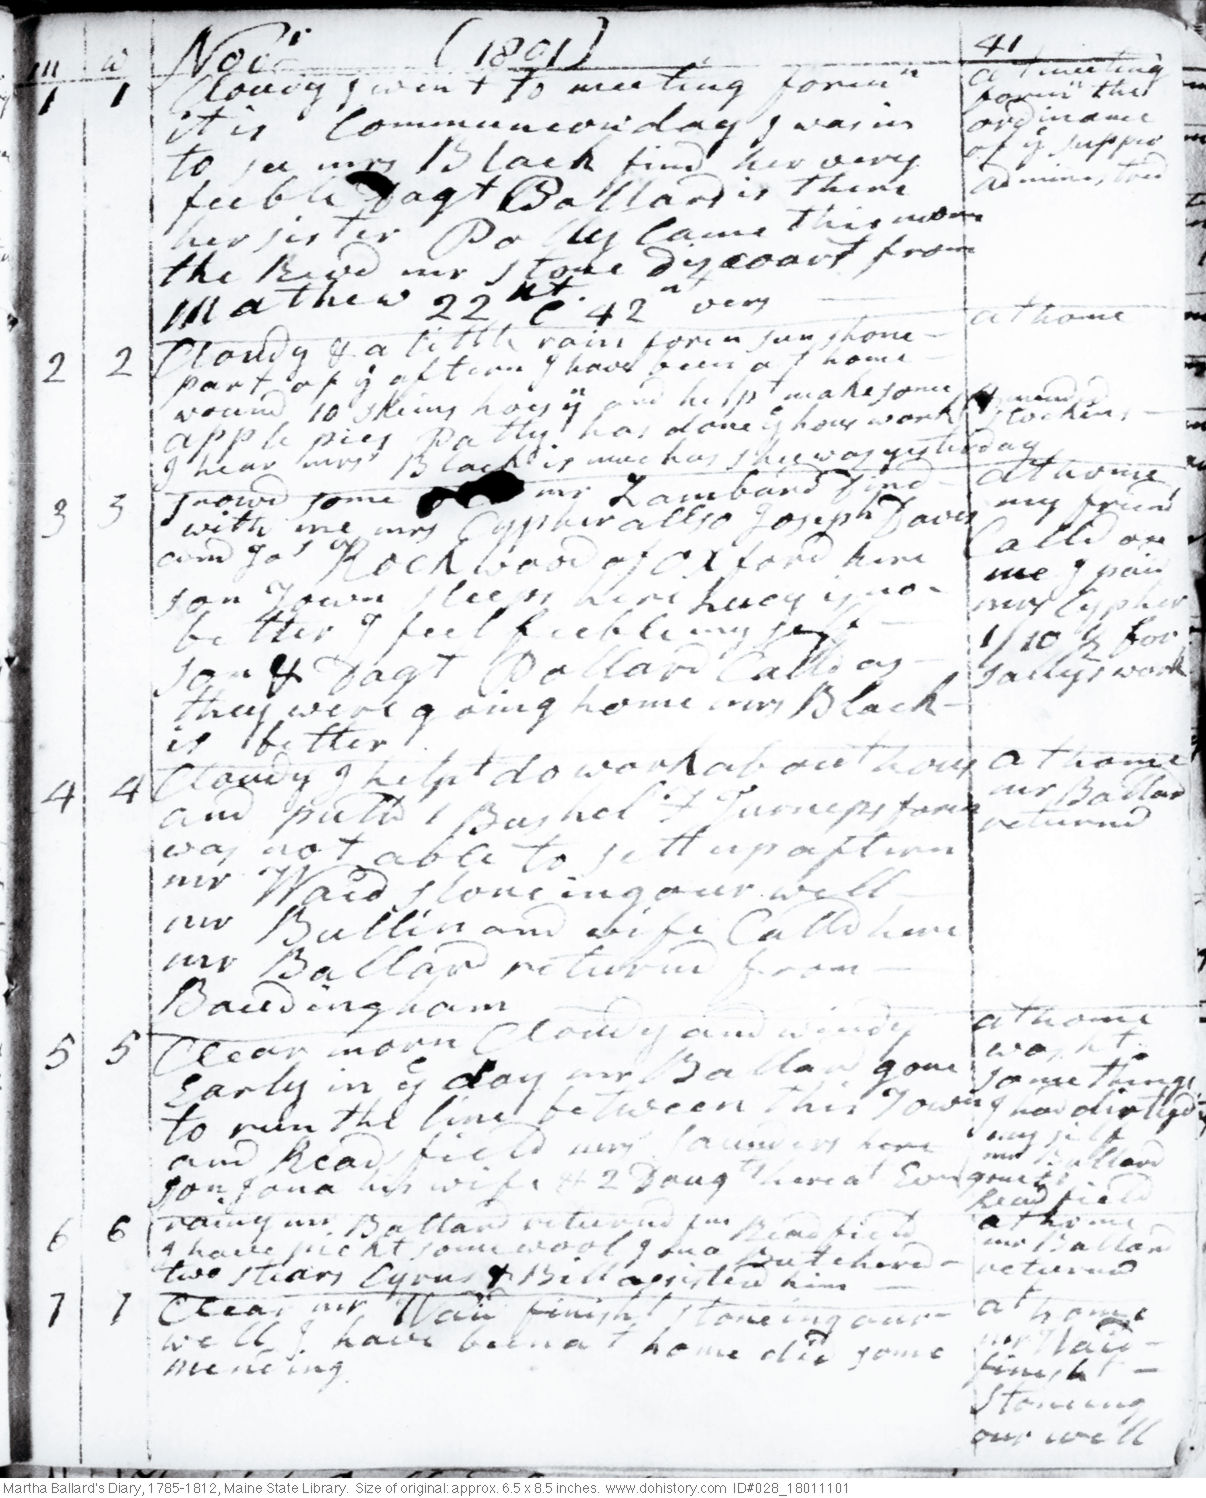 m w Novr (1801) 41
1 1 Cloudy I went to meeting foren n
it is Communion day I was in
to see mrs Black find her very
feeble Dagt Ballard is there
her sister Polly Came this morn
the Revd mr Stone discoart from
Mathew 22nd C 42nt vers
at meeting
foren n the
ordinance
of ye supper
administred
2 2 Cloudy & a little rain foren sun shone
part of ye aftern I have been at home
wound 10 skeins and help make some
apple pies Patty has done ye hous work
I hear mrs Black is much as shee was yesterday
at home
stockins
3 3 snowd some mr Lambard dind
with me mrs Cypher allso Joseph Daves
and Jas Rockwood of Oxford here
son Town sleeps here is no
better I feel feeble my self
son & Dagt Pollard Calld as
they were going home mrs Black
is better
at home
my friend
Calld on
me I paid
mrs Cypher
1/10 for
Sallys work
4 4 Cloudy I helpt do work about hous
and pulld 1 Bushel Turneps foren
was not able to sett up aftern
mr Waid stoneing our well
mr Bullin and wife Calld here
mr Ballard returnd from
Bowdingham
at home
mr Ballard
returnd
5 5 Clear morn Cloudy and windy
Early in ye day mr Ballard gone
to run the line between this Town
and Readfield mrs Saunders here
son Jona his wife & 2 Daugts here at Evn
at home
washt
some things
I had dirtyd
my self
mr Ballard
gone to
Readfield
6 6 rainy mr Ballard returnd fm Readfield
I have pickt some wool Jona Butchered
two stears Cyrus & Bill asisted him
at home
mr Ballard
returnd
7 7 Clear mr Waid finisht stoneing our
well I have been at home did some
mending
at home
mr Waid
finisht
stoneing
our well
Martha Ballard's Diary, 1785-1812, Maine State Library. Size of original: approx. 6.5 x 8.5 inches. www.dohistory.com ID#028_18011101